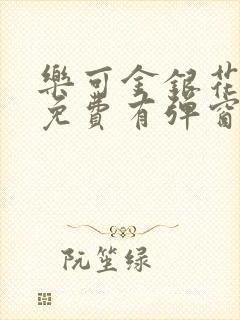 樂可金銀花
免費有彈窗
阮笙绿